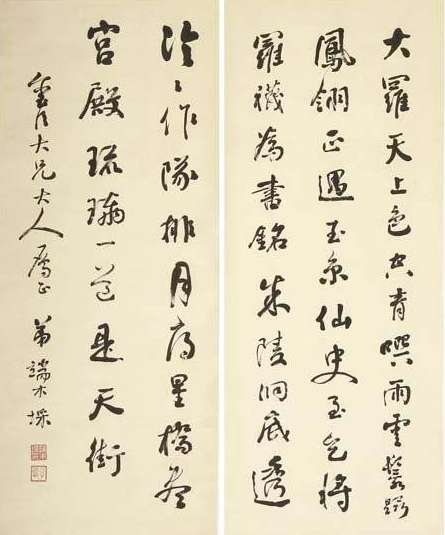 大羅天上色空青噀雨雲鬟
鳳翎正遇玉京仙史至乞將
羅襪為書銘朱陵洞底透
泠〻作隊排月府星橋
宮殿琉璃一道是天街
大兄大人屬正 弟端木埰